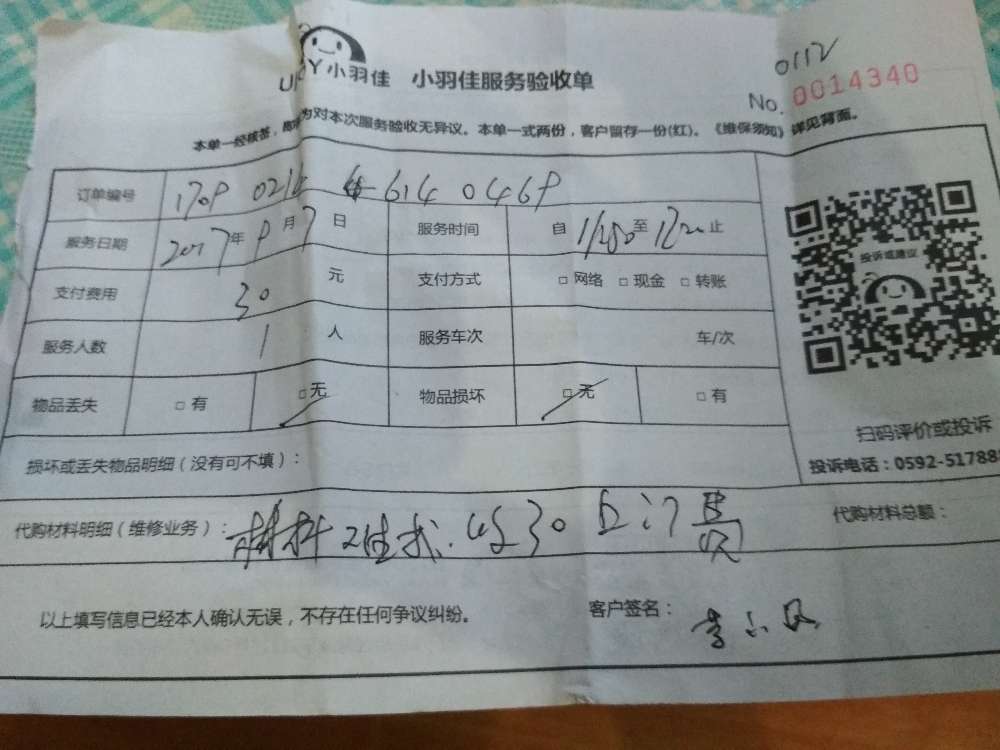 0112
小羽佳 小羽佳服务验收单
No. 0014340
为对本次服务验收无异议。本单一式两份，客户留存一份(红)。《维保须知》详见背面。
订单编号
服务日期 2017年9月7日 服务时间 自 至 止
支付费用 30 元 支付方式 □ 网络 □ 现金 □ 转账
服务人数 1 人 服务车次 车/次
物品丢失 □ 有 □ 无 物品损坏 □ 无 □ 有
投诉或建议
扫码评价或投诉
投诉电话：0592-51788
损坏或丢失物品明细（没有可不填）：
代购材料明细（维修业务）： 材料 30 代购材料总额：
以上填写信息已经本人确认无误，不存在任何争议纠纷。 客户签名：